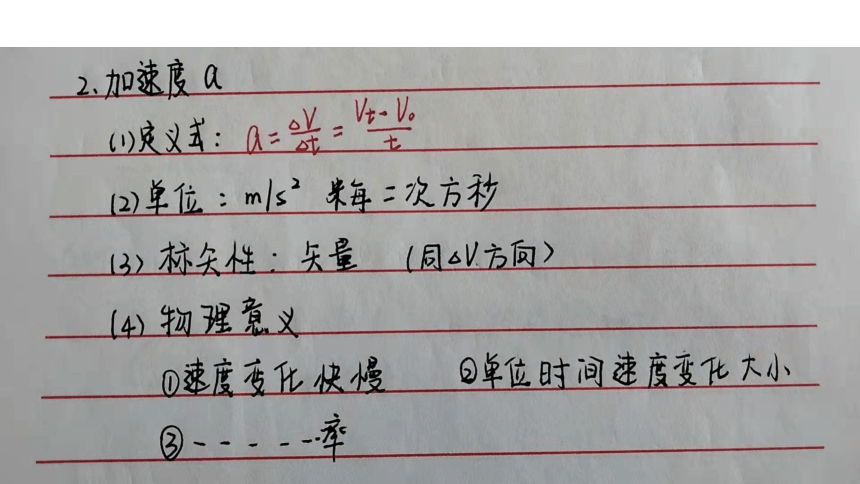 2、加速度 a
(1)定义式: a=△V/△t=Vt-V₀/t
(2)单位: m/s² 米每二次方秒
(3)标矢性: 矢量 (同△V方向)
(4)物理意义
①速度变化快慢 ②单位时间速度变化大小
③-----·率